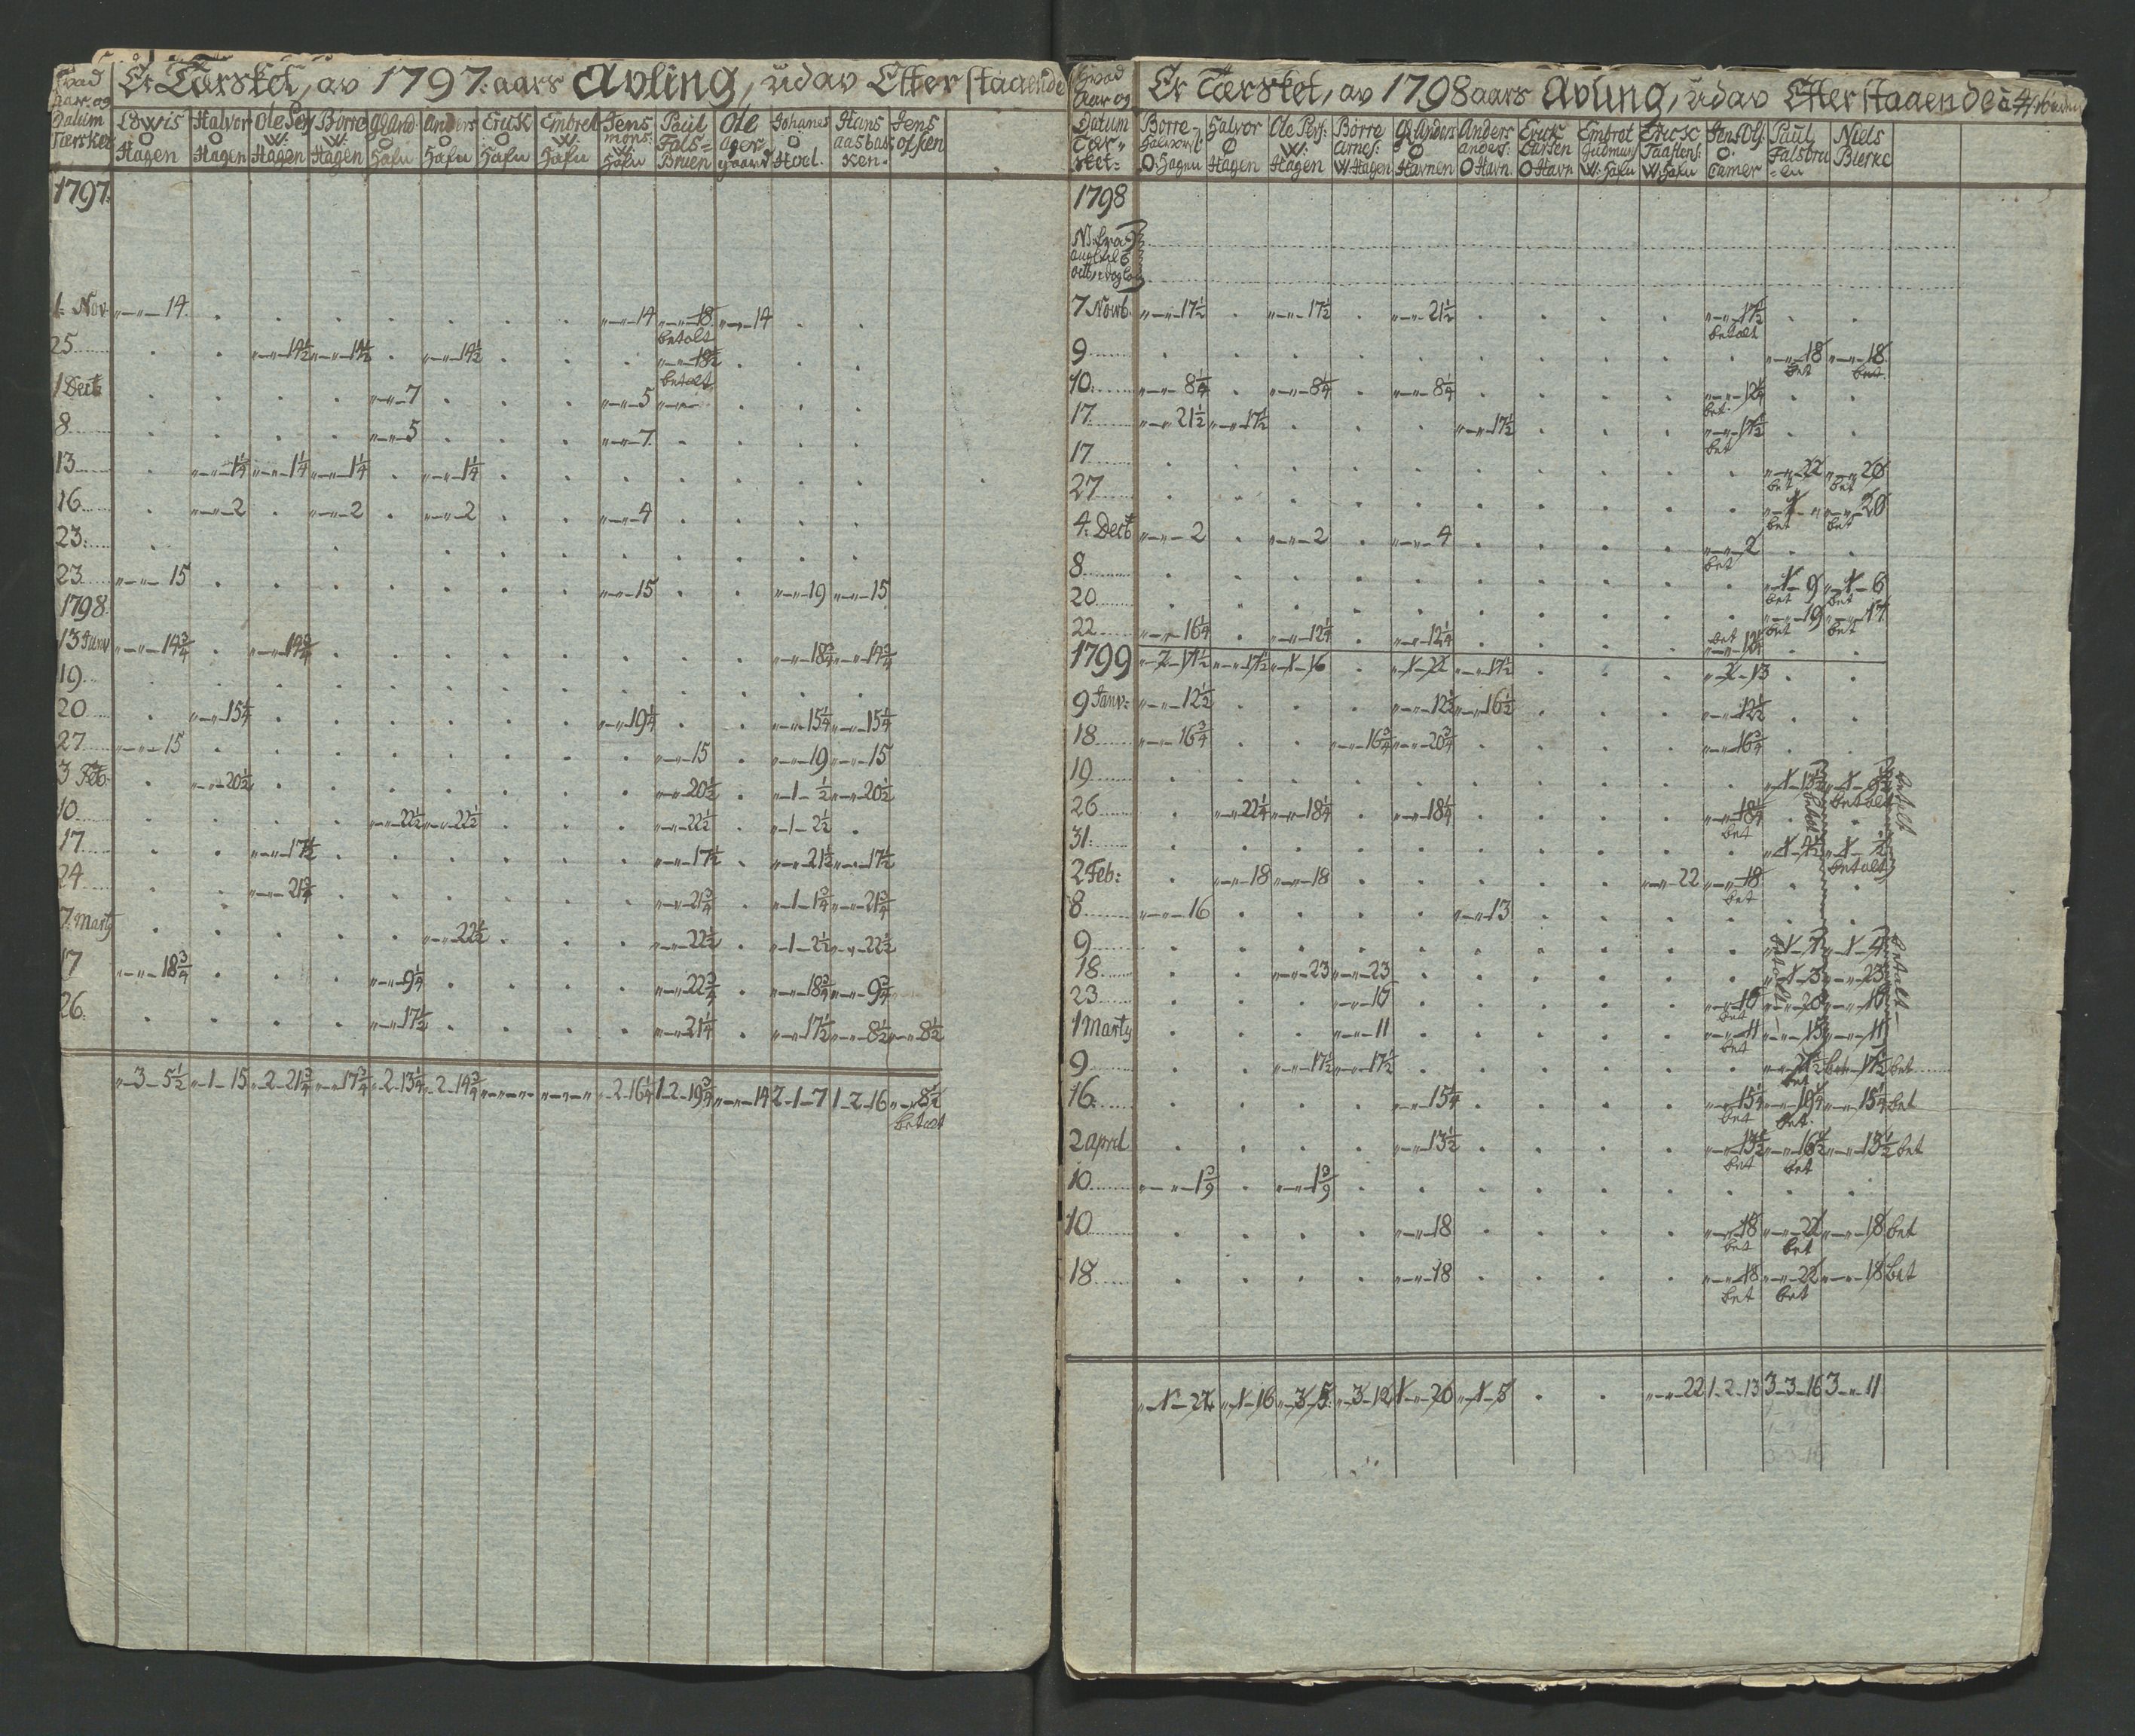 Hvad Er Tærsket, av 1797: aars Avling, udav Efter staaende
Aar og Datum Tærsket | Lowis O Hagen | Halvor O Hagen | Ole Pey W: Hagen | Borre W: Hagen | Gl And: O Hafn | anders O Hafn | Erick O Hafn | Embret W: Hafn | Jens mons: W: Hafn | Paul Fals= Bruen | Ole ager gaard | Johanes O Hoel. | Hans aasbac ken. | Jens ofsen
1797:
1: Nov „—„—14. „—„—14 „—„—18 betalt „—„—14
25 „—„—14½ „—„—14½ „—„—14½ „—„—18½ betalt
1 Decb „—„—7 „—„—5 „—„—
8 „—„—5 „—„—7.
13 „—„—1¼ „—„—1¼ „—„—1¼ „—„—1¼
16 „—„—2 „—„—2 „—„—2 „—„—4
23:
23 „—„—15 „—„—15 „—„—19 „—„—15
1798.
13 Janv „—„—14¾ „—„—14¾ „—„—18¾ „—„—14¾
19
20 „—„—15¼ „—„—19¼ „—„—15¼ „—„—15¼
27 „—„—15 „—„—15 „—„—19 „—„—15
3 Feb: „—„—20½ „—„—20½ „—1—½ „—„—20½
10 „—„—22½ „—„—22½ „—„—22½ „—1—2½
17 „—„—17½ „—„—17½ „—„—21½ „—„—17½
24 „—„—21¾ „—„—21¾ „—1—1¾ „—„—21¾
7: Marty „—„—22½ „—„—22½ „—1—2½ „—„—22½
17 „—„—18¾ „—„—9¼ „—„—22¾ „—„—18¾ „—„—9¾
26: „—„—17½ „—„—21¼ „—„—17½ „—„—8½ „—„—8½
„—3—5½ „—1—15 „—2—21¾ „—„—17¾ „—2—13¼ „—2—14¾ „—„—„—„ „—„—„—„ „—2—16¼ 1—2—19¾ „—„—14 2—1—7 1—2—16 „—„—8½ betalt
Hvad Er Tærsket, av 1798 aars Avling, udav Efter staaende
Aar og Datum Tær„ sket= | Borre Halvor: O. Hagen | Halvor O Hagen | Ole Pers: W: Hagen | Börre arnes: W: Hagen | Gl Anders O Havnen | Anders anders: O Havn. | Erick Larsen O Havn | Embret Gudmun W: Hafn | Erick Taasten: W: Hafn | Jens Ols: O. Camer | Paul Falsbru =en | Niels Bierke
1798
7 Novb. „—„—17½ „—„—17½ „—„—21½ „—„—17½ betalt
9 „—„—18 bet „—„—18 bet.
10: „—„—8¼ „—„—8¼ „—„—8¼ „—„—12¼ bet.
17 „—„—21½ „—„—17½ „—„—17½ „—„—17½ bet
17 „—„—22 bet „—„—20 bet
27 „—1—„ bet „—„—20 bet
4: Decb „—„—2 „—„—2 „—„—4 „—„—2 bet
8 „—1—9 bet „—1—6 bet
20 „—„—19 bet „—„—17 bet
22 „—„—16¼ „—„—12¼ „—„—12¼ bet „—„—12¼
1799 „—2—17½ „—„—17½ „—1—16 „—1—22 „—„—17½ „—2—13
9 Janv: „—„—12½ „—„—12½ „—„—16½ „—„—12½
18 „—„—16¾ „—„—16¾ „—„—20¾ „—„—16¾
19 „—1—13½ „—1—9½ betalt betalt
26 „—„—22¼ „—„—18¼ „—„—18¼ „—„—18¼ bet
31: „—1—4½ „—1—½ betalt
2 Feb: „—„—18 „—„—18 „—„—22 „—„—18 bet
8 „—„—16 „—„—13
9 „—1—7 „—1—4 betalt
18 „—„—23 „—„—23 „—1—3 „—„—23
23 „—„—16 „—„—16 bet „—„—20 „—„—16
1 Marty „—„—11 „—„—11 bet „—„—15 „—„—11
9 „—„—17½ „—„—17½ „—„—21½ bet „—„—17½ bet
16: „—„—15¼ „—„—15¼ bet „—„—19¼ bet. „—„—15¼ bet
2 april „—„—13½ „—„—13½ bet „—„—16½ bet „—„—13½ bet
10 „—„—1⅑ „—„—1⅑
10 „—„—18 „—„—18 bet „—„—22 bet „—„—18 bet
18 „—„—18 „—„—18 bet „—„—22 bet „—„—18 bet
„—1—22 „—1—16 „—3—5 „—3—12 1—„—20 „—1—5 „—„—22 1—2—13 3—3—16 3—„—11